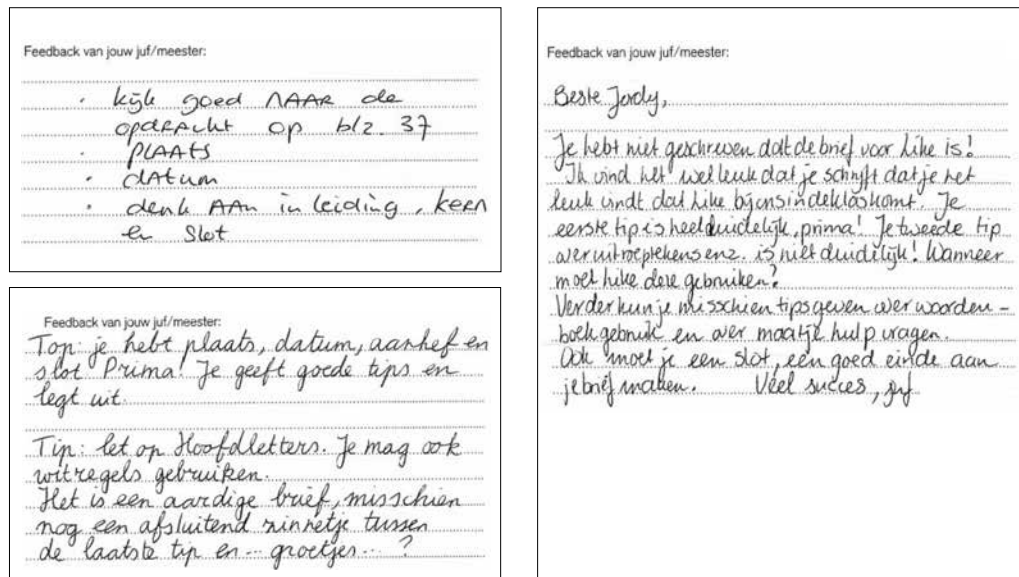 Feedback van jouw juf/meester:
· kijk goed NAAR de
opdRAcht op blz. 37
· PLAATS
· dAtum
· denk AAn inleiding, kern
en Slot
Feedback van jouw juf/meester:
Top: je hebt plaats, datum, aanhef en
slot Prima! Je geeft goede tips en
legt uit.
Tip: let op Hoofdletters. Je mag ook
witregels gebruiken.
Het is een aardige brief, misschien
nog een afsluitend zinnetje tussen
de laatste tip en ... groetjes ... ?
Feedback van jouw juf/meester:
Beste Jordy,
Je hebt niet geschreven dat de brief voor Hike is!
Ik vind het wel leuk dat je schrijft dat je het
leuk vindt dat Hike bij ons in de klas komt. Je
eerste tip is heel duidelijk, prima! Je tweede tip
over uitroeptekens enz. is niet duidelijk! Wanneer
moet Hike deze gebruiken?
Verder kun je misschien tips geven over woorden-
boekgebruik en over maatje hulp vragen.
Ook moet je een slot, een goed einde aan
je brief maken. Veel succes, juf